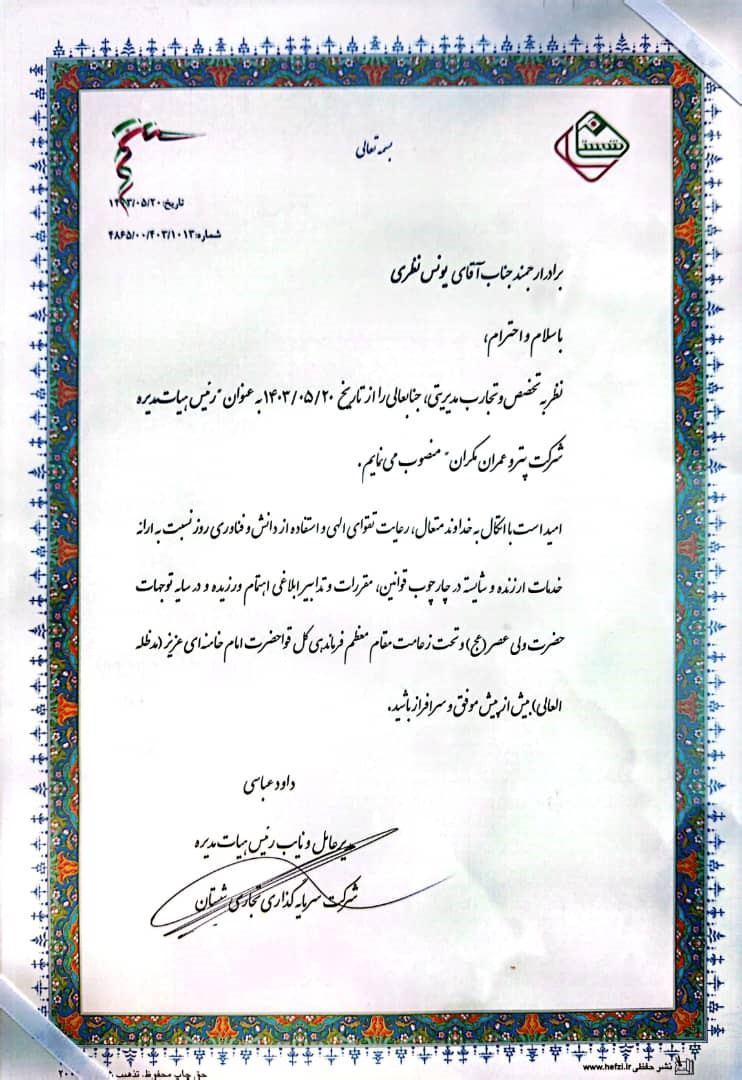 بسمه تعالی
شستان
تاریخ: ۱۴۰۳/۰۵/۲۰
شماره: ۴۸۶۵/۰۰/۴۰۳/۱۰۱۳
برادر ارجمند جناب آقای یونس نظری
با سلام و احترام،
نظر به تخصص و تجارب مدیریتی، جنابعالی را از تاریخ ۱۴۰۳/۰۵/۲۰ به عنوان "رئیس هیات مدیره
شرکت پترو عمران مکران" منصوب می نمایم.
امید است با اتکال به خداوند متعال، رعایت تقوای الهی و استفاده از دانش و فناوری روز نسبت به ارائه
خدمات ارزنده و شایسته در چارچوب قوانین، مقررات و تدابیر ابلاغی اهتمام ورزیده و در سایه توجهات
حضرت ولی عصر (عج) و تحت زعامت مقام معظم فرماندهی کل قوا حضرت امام خامنه ای عزیز (مدظله
العالی) بیش از پیش موفق و سرافراز باشید.
داود عباسی
مدیرعامل و نایب رئیس هیات مدیره
شرکت سرمایه گذاری تجاری شستان
نشر حفظی www.hefzi.ir
حق چاپ محفوظ. تذهیب